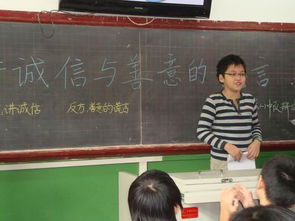 诚信与善意的 言
讲诚信 反方:善意的谎言